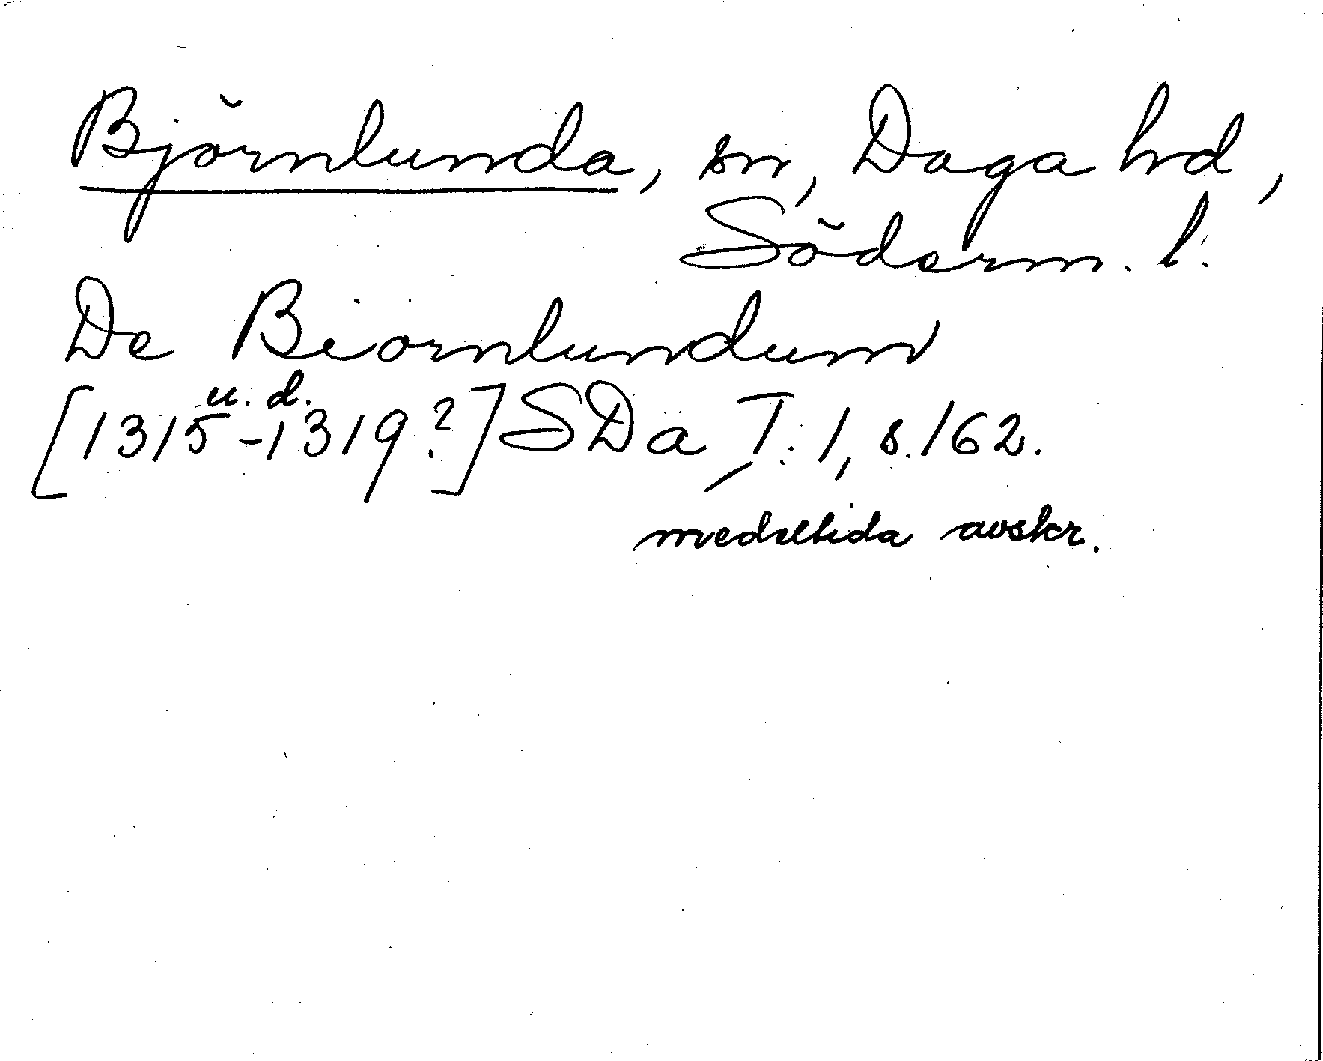 Björnlunda, sn, Daga hd,
Söderm. l.
De Biornlundum
u. d.
[1315-1319?] SDa, T. 1, s. 162.
medeltida avskr.